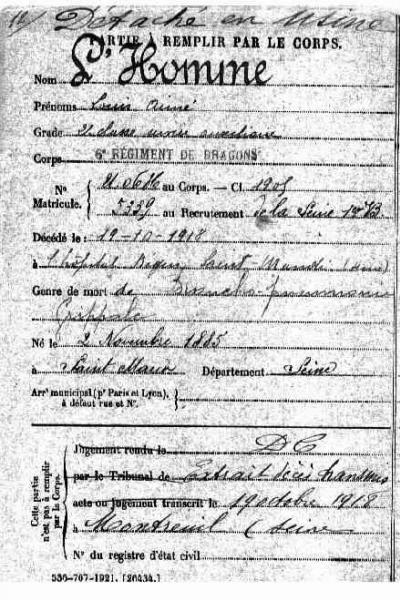 Détaché en Usine
PARTIE À REMPLIR PAR LE CORPS.
L'Homme
Nom
Prénoms Aimé
Grade 2e classe service auxiliaire
Corps 6e RÉGIMENT DE DRAGONS
N° au Corps. — Cl. 1905
Matricule. 5339 au Recrutement de la Seine 1er B.
Décédé le : 19-10-1918
à l'hôpital Begin Saint-Mandé (Seine)
Genre de mort de Broncho-pneumonie
Grippale
Né le 2 Novembre 1885
à Saint Maur Département Seine
Arrt municipal (pr Paris et Lyon),
à défaut rue et N°.
Cette partie
n'est pas à remplir
par le Corps.
Jugement rendu le DC
par le Tribunal de Extrait décès transmis
acte ou jugement transcrit le 19 octobre 1918
à Montreuil (Seine
N° du registre d'état civil
536-707-1921. [26434.]